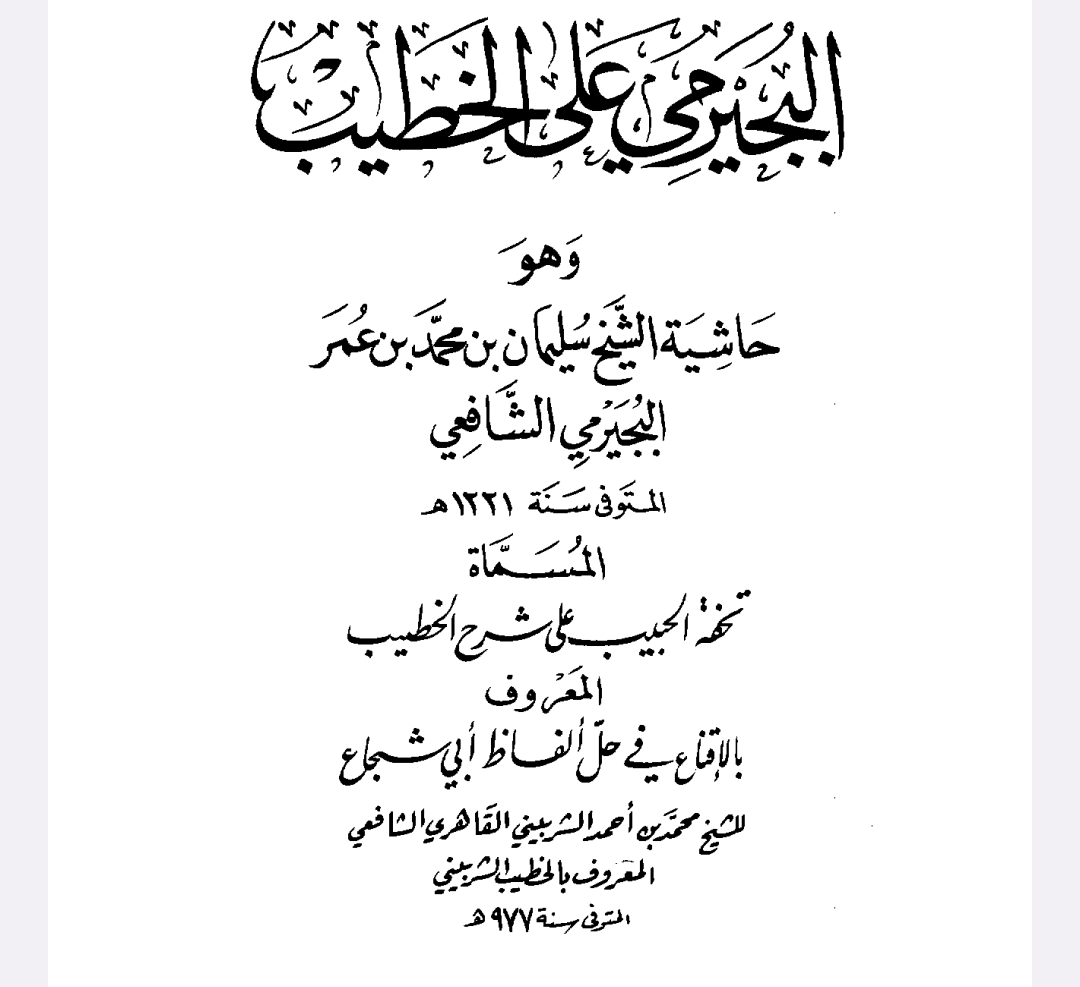 البُجَيْرَمِي عَلى الخَطيب
وَهوَ
حَاشِيَة الشَّيخ سُليمَان بن محمَّد بن عُمَر
البُجَيْرَمِي الشَّافِعي
المتَوفى سَنَة ١٢٢١ هـ
المُسَمَّاة
تحفة الحبيب على شرح الخطيب
المَعْروف
بالإقناع في حلّ ألفاظ أبي شجاع
للشيخ محمَّد بن أحمد الشربيني القَاهري الشافعي
المعَروف بالخطيب الشربيني
المتوفى سنة ٩٧٧ هـ